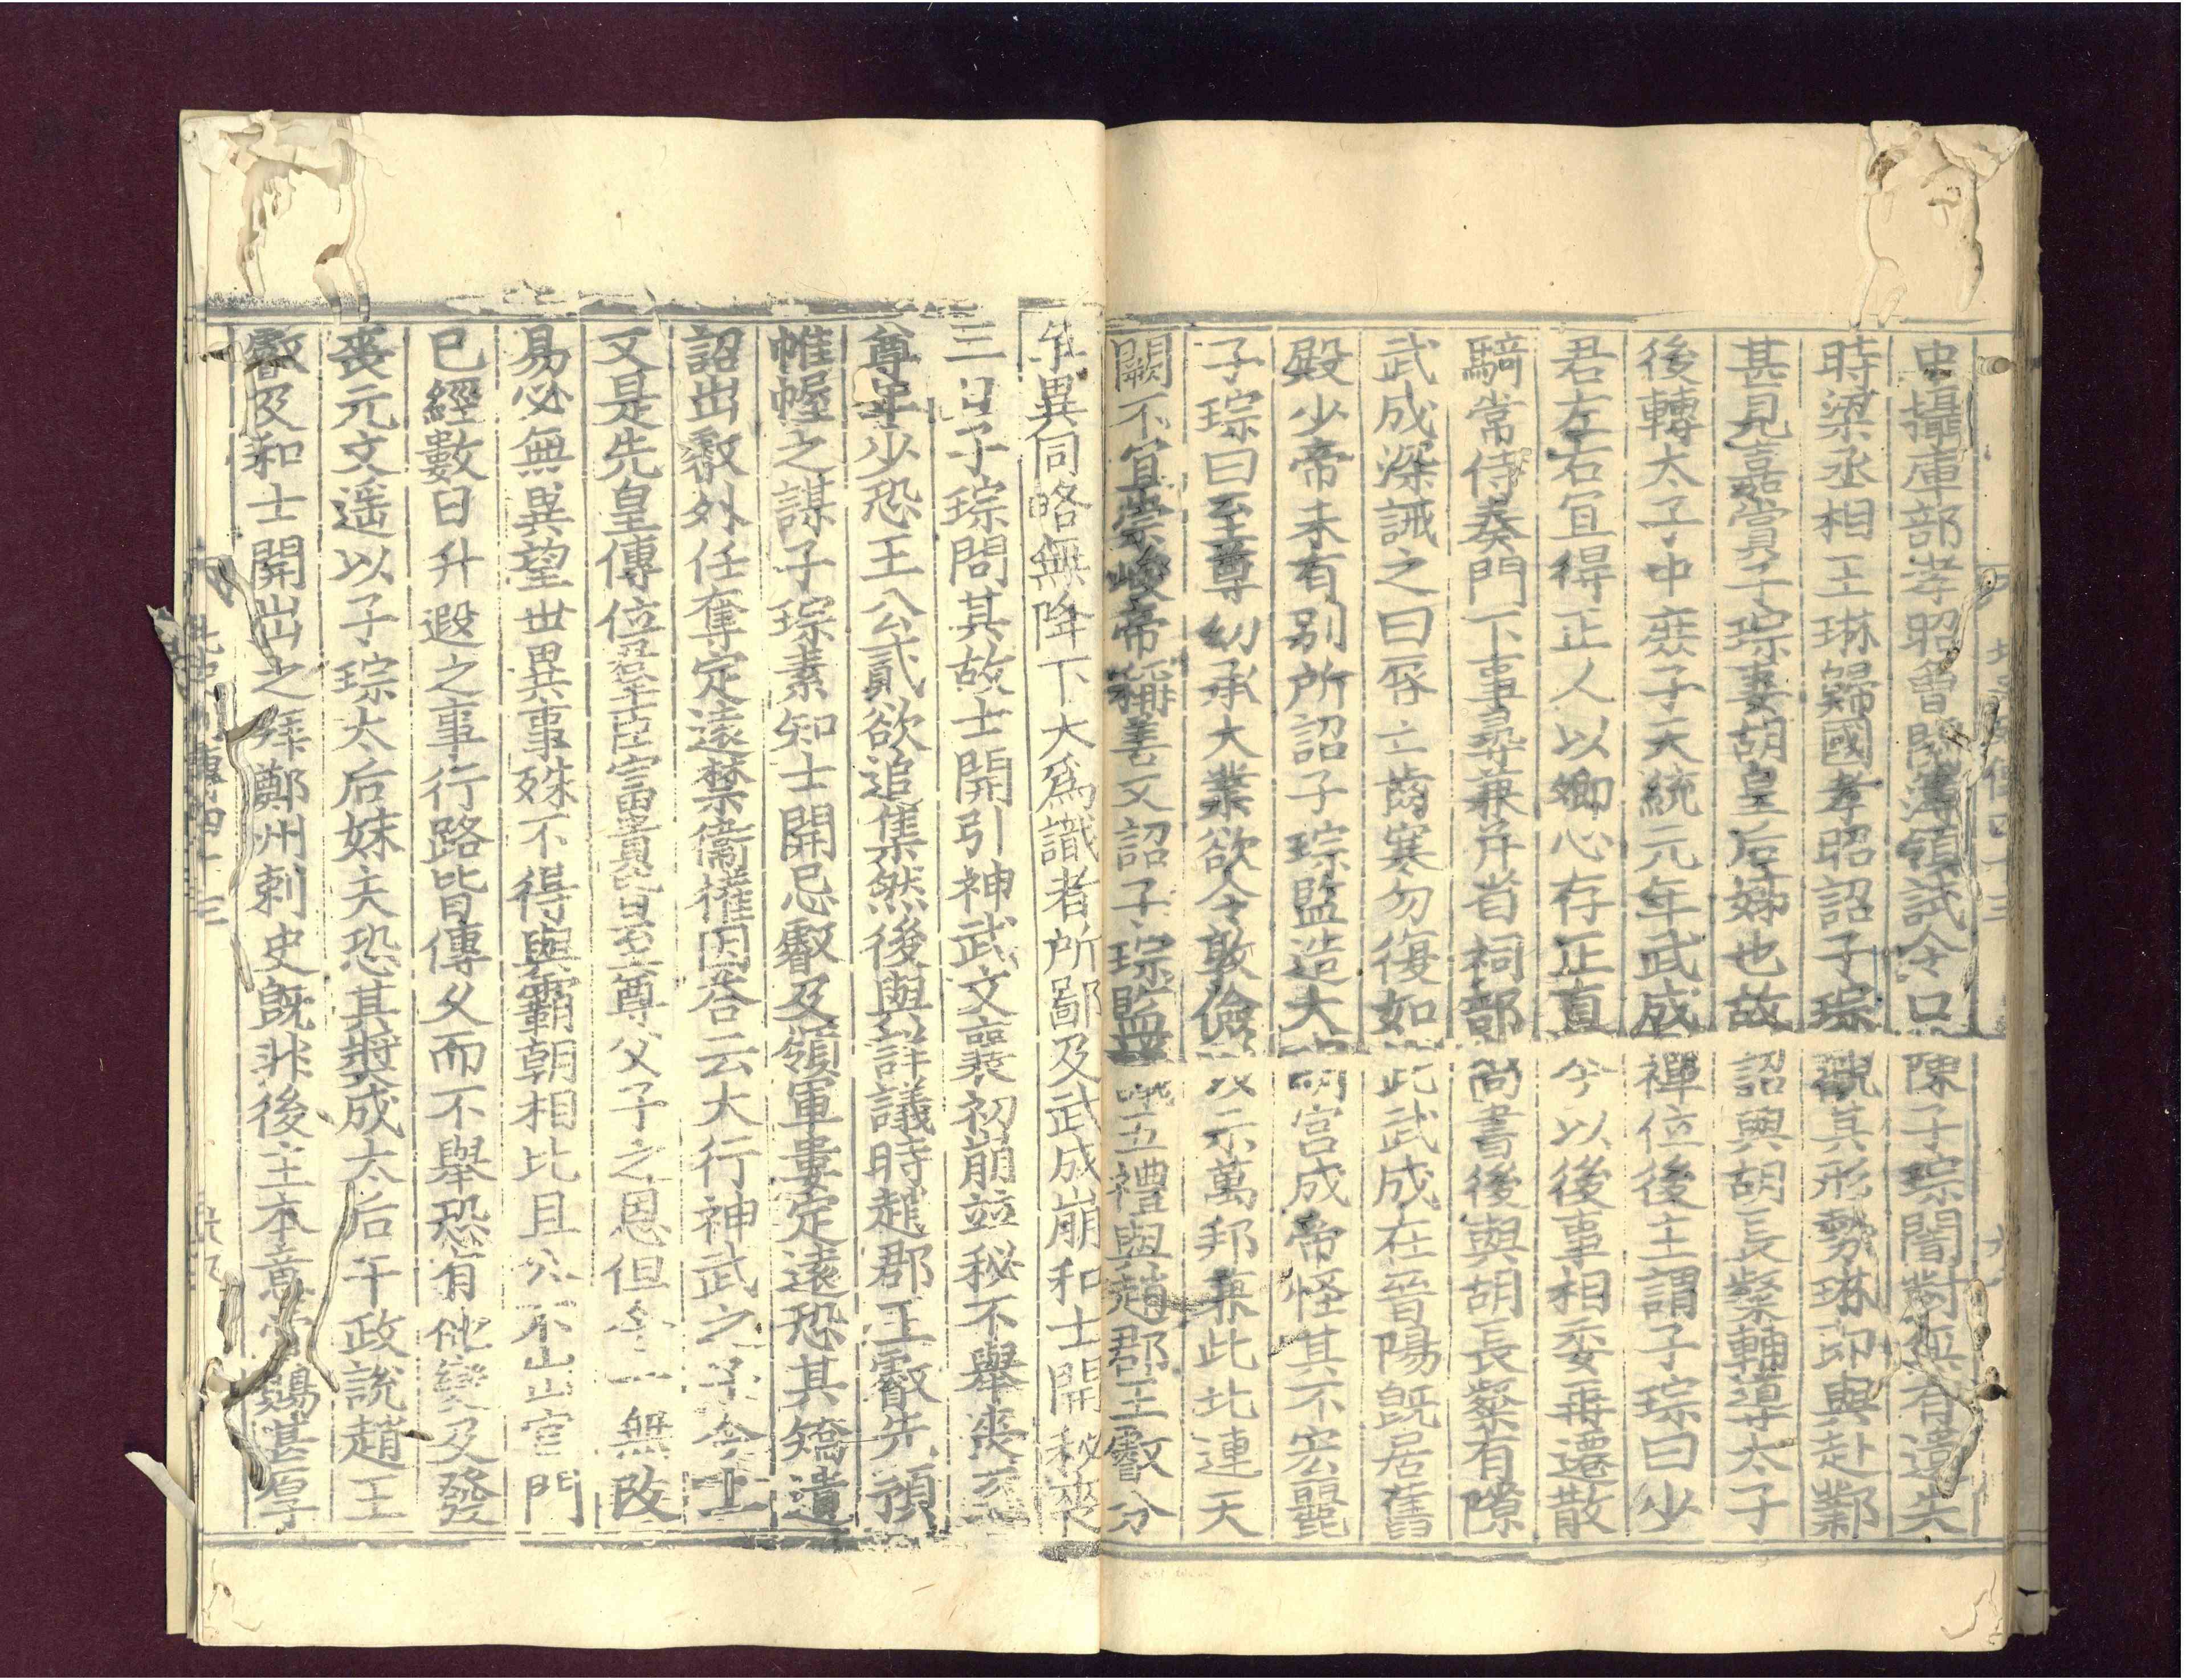 史攝庫部孝昭曾閱簿領試令口陳子琮闇對無有遺失
時梁丞相王琳歸國孝昭詔子琮觀其形勢琳即與赴鄴
甚見嘉賞子琮妻胡皇后姊也故詔與胡長粲輔導太子
後轉太子中庶子天統元年武成禪位後主謂子琮曰少
君左右宜得正人以卿心存正直今以後事相委再遷散
騎常侍奏門下事尋兼并省祠部尚書後與胡長粲有隙
武成深誡之曰脣亡齒寒勿復如此武成在晉陽旣居舊
殿少帝未有別所詔子琮監造大明宮成帝怪其不宏麗
子琮曰至尊幼承大業欲令敦儉以示萬邦兼此北連天
闕不宜崇峻帝稱善又詔子琮監 五禮與趙郡王叡分
年異同略無降下大爲識者所鄙及武成崩和士開秘喪
三日子琮問其故士開引神武文襄初崩並秘不舉喪至
尊年少恐王公貳欲追集然後與詳議時趙郡王叡先預
帷幄之謀子琮素知士開忌叡及領軍婁定遠恐其矯遺
詔出叡外任奪定遠禁衞權因答云大行神武之子今上
又是先皇傳位羣臣富貴皆至尊父子之恩但令一無改
易必無異望世異事殊不得與霸朝相比且公不出宮門
已經數日升遐之事行路皆傳久而不舉恐有他變及發
喪元文遥以子琮太后妹夫恐其奬成太后干政說趙王
叡及和士開出之拜鄭州刺史旣非後主本意 賜甚厚子
北史列傳四十三